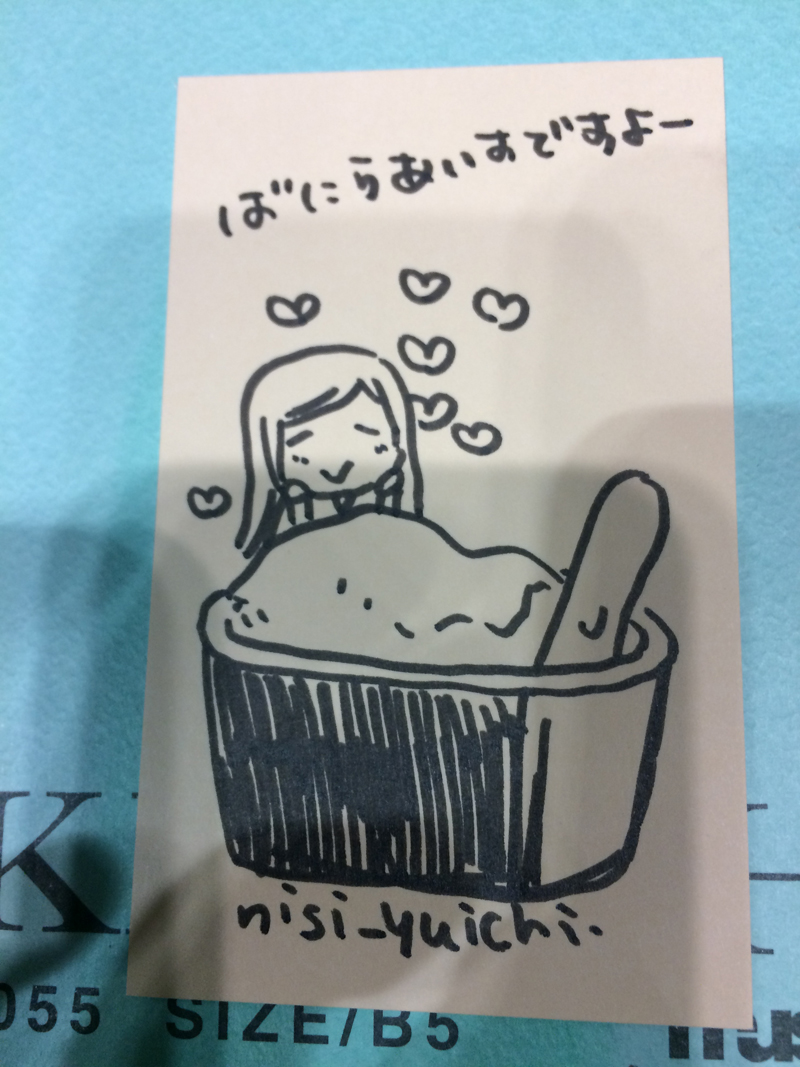 ばにらあいすですよー
nisi-yuichi.
055 SIZE/B5